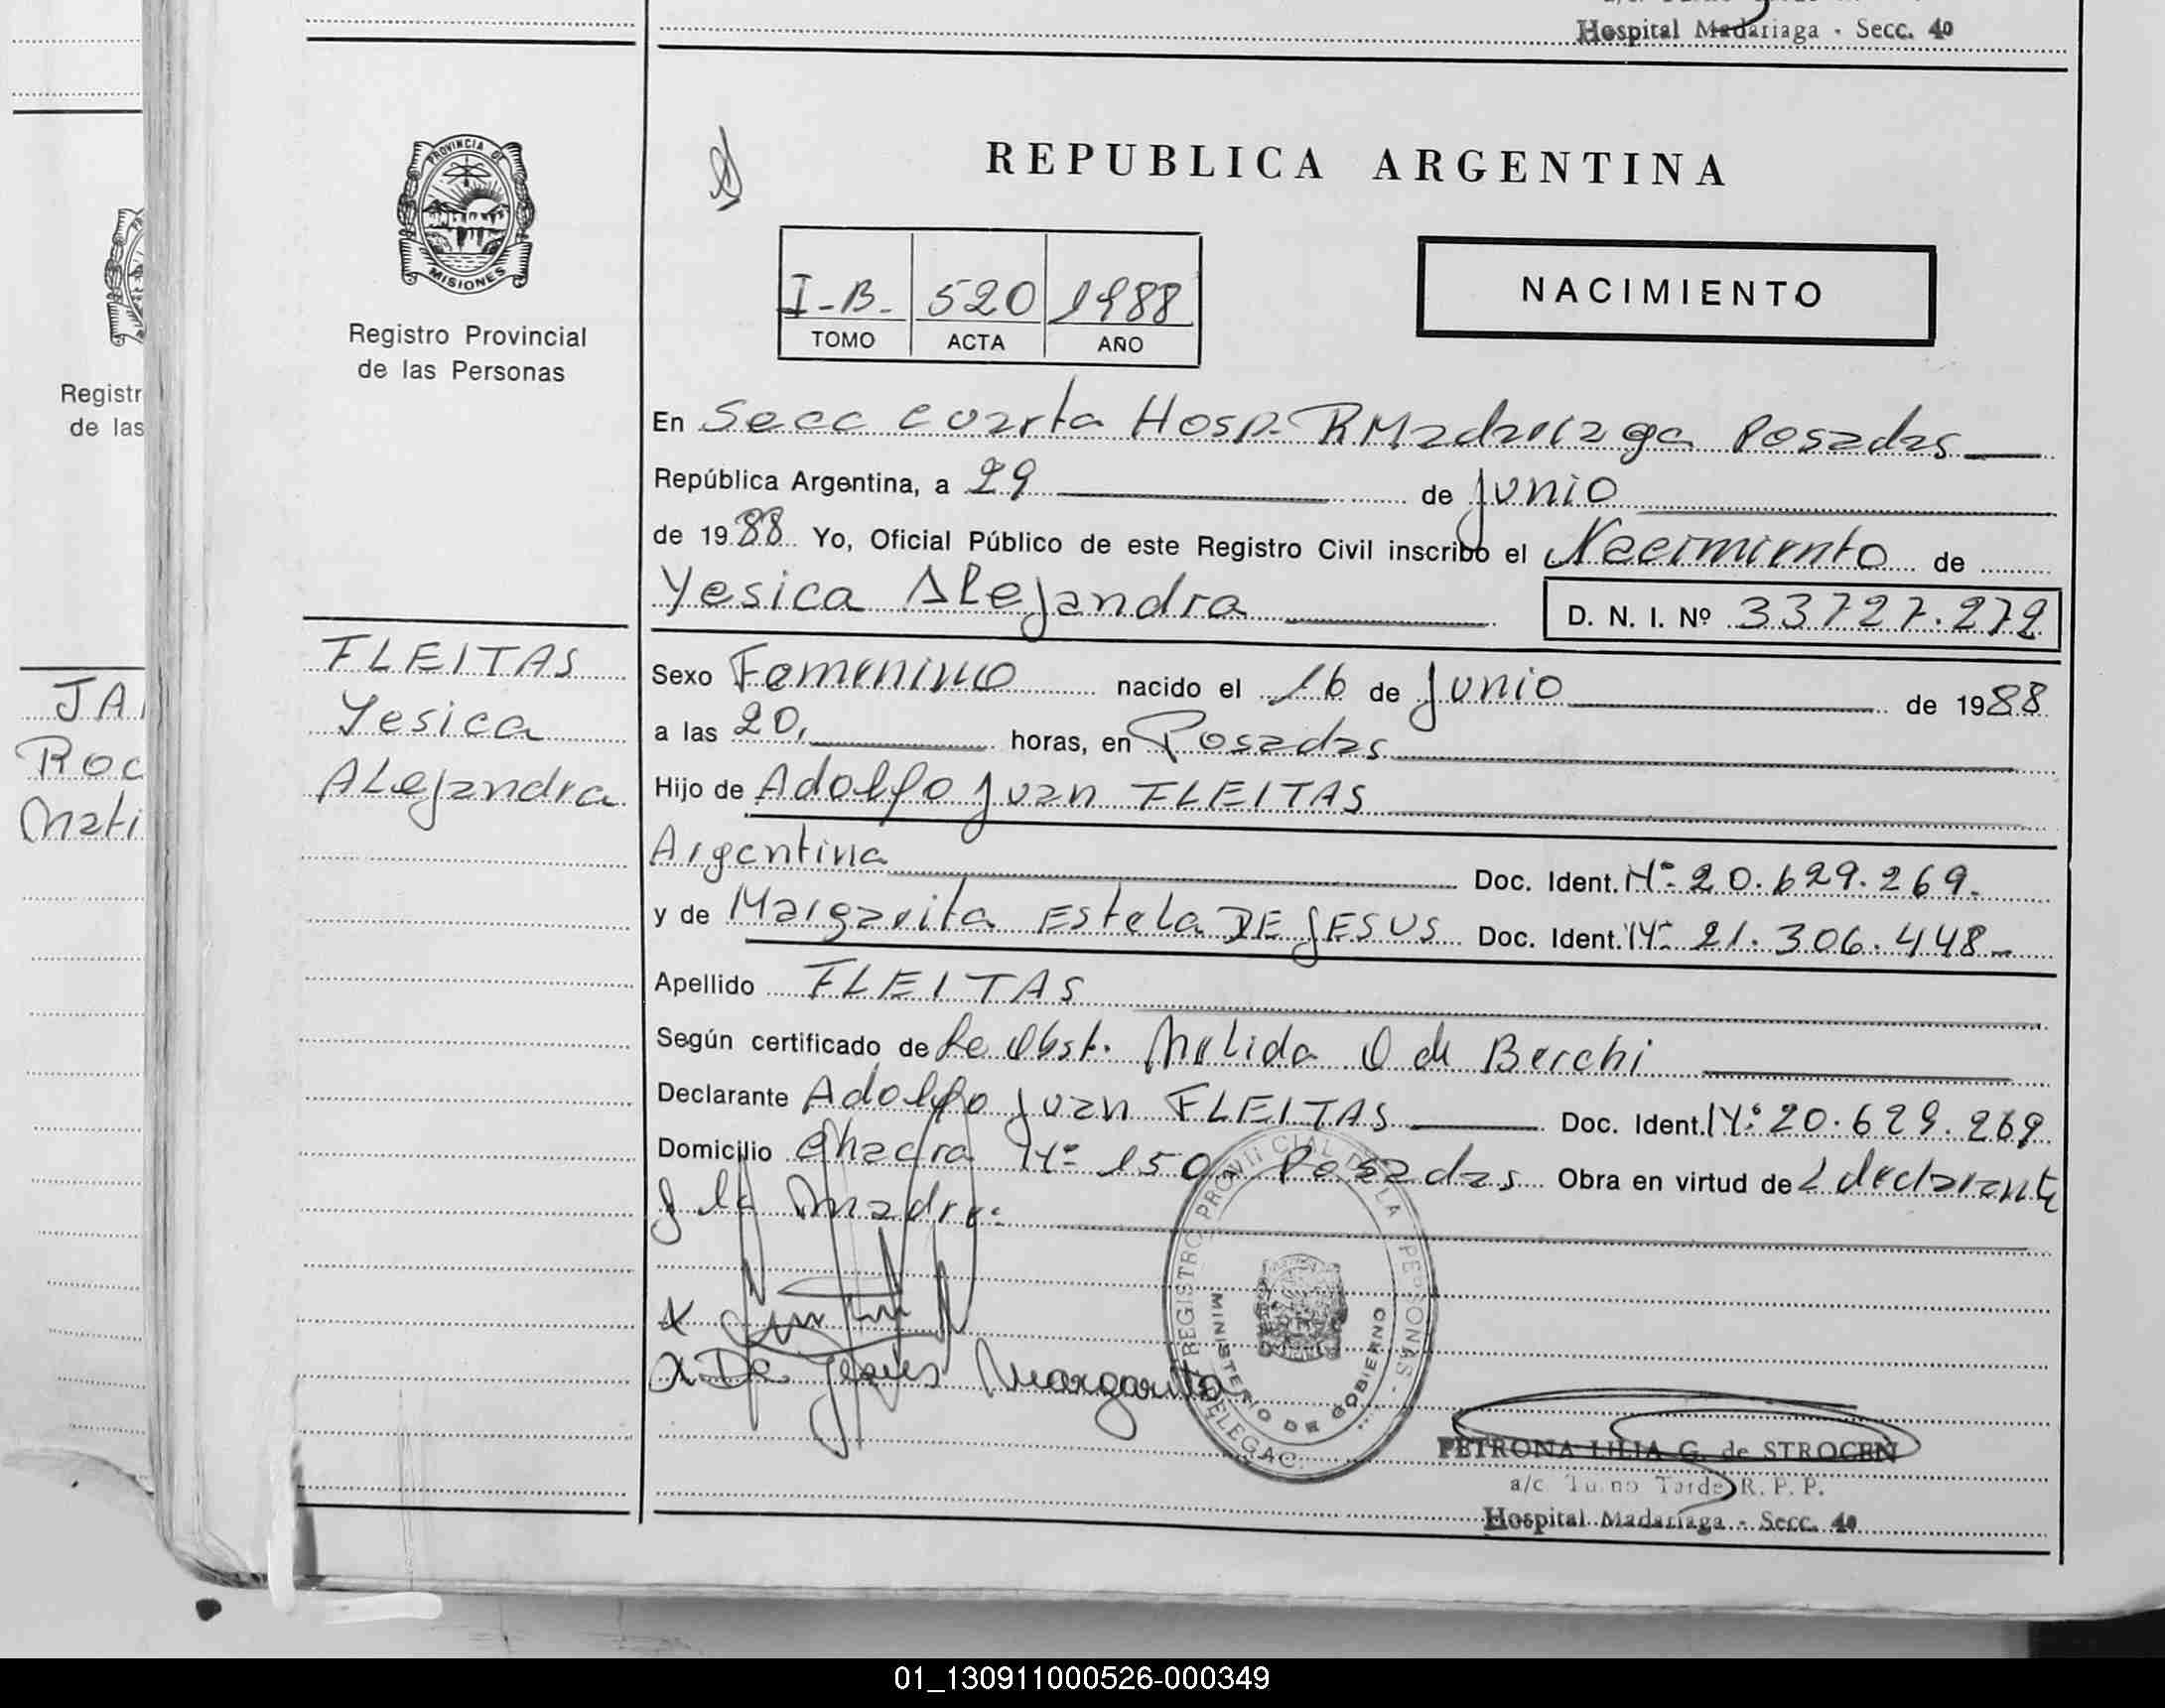 Hospital Madariaga - Secc. 4º
REPUBLICA ARGENTINA
PROVINCIA DE
MISIONES
Registro Provincial
de las Personas
I-B- 520 1988
TOMO ACTA AÑO
NACIMIENTO
En Secc cuarta Hosp. R Madariaga Posadas
República Argentina, a 29 de Junio
de 1988 Yo, Oficial Público de este Registro Civil inscribo el Nacimiento de
Yesica Alejandra D. N. I. Nº 33727.272
FLEITAS
Yesica
Alejandra
Sexo Femenino nacido el 16 de Junio de 1988
a las 20, horas, en Posadas
Hijo de Adolfo Juan FLEITAS
Argentina Doc. Ident. Nº 20.629.269.
y de Margarita Estela DE JESUS Doc. Ident. Nº 21.306.448-
Apellido FLEITAS
Según certificado de la Obst. Nelida O de Berchi
Declarante Adolfo Juan FLEITAS Doc. Ident. Nº 20.629.269
Domicilio Chacra Nº 150 Posadas Obra en virtud de L declarante
y la Madre.
x
x De Jesus Margarita
REGISTRO PROVINCIAL DE LA PERSONAS - DELEGAC.
MINISTERIO DE GOBIERNO
PETRONA LILIA G. de STROCEN
a/c Turno Tarde R. P. P.
Hospital Madariaga - Secc. 4º
Registr
de las
JA
Roc
Mati
01_130911000526-000349